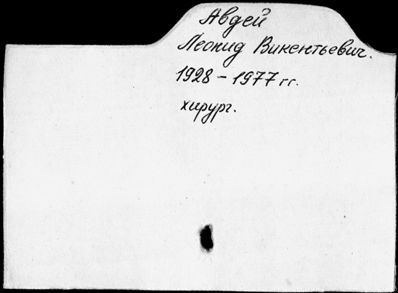 Авдей
Леонид Викентьевич.
1928 – 1977 гг.
хирург.